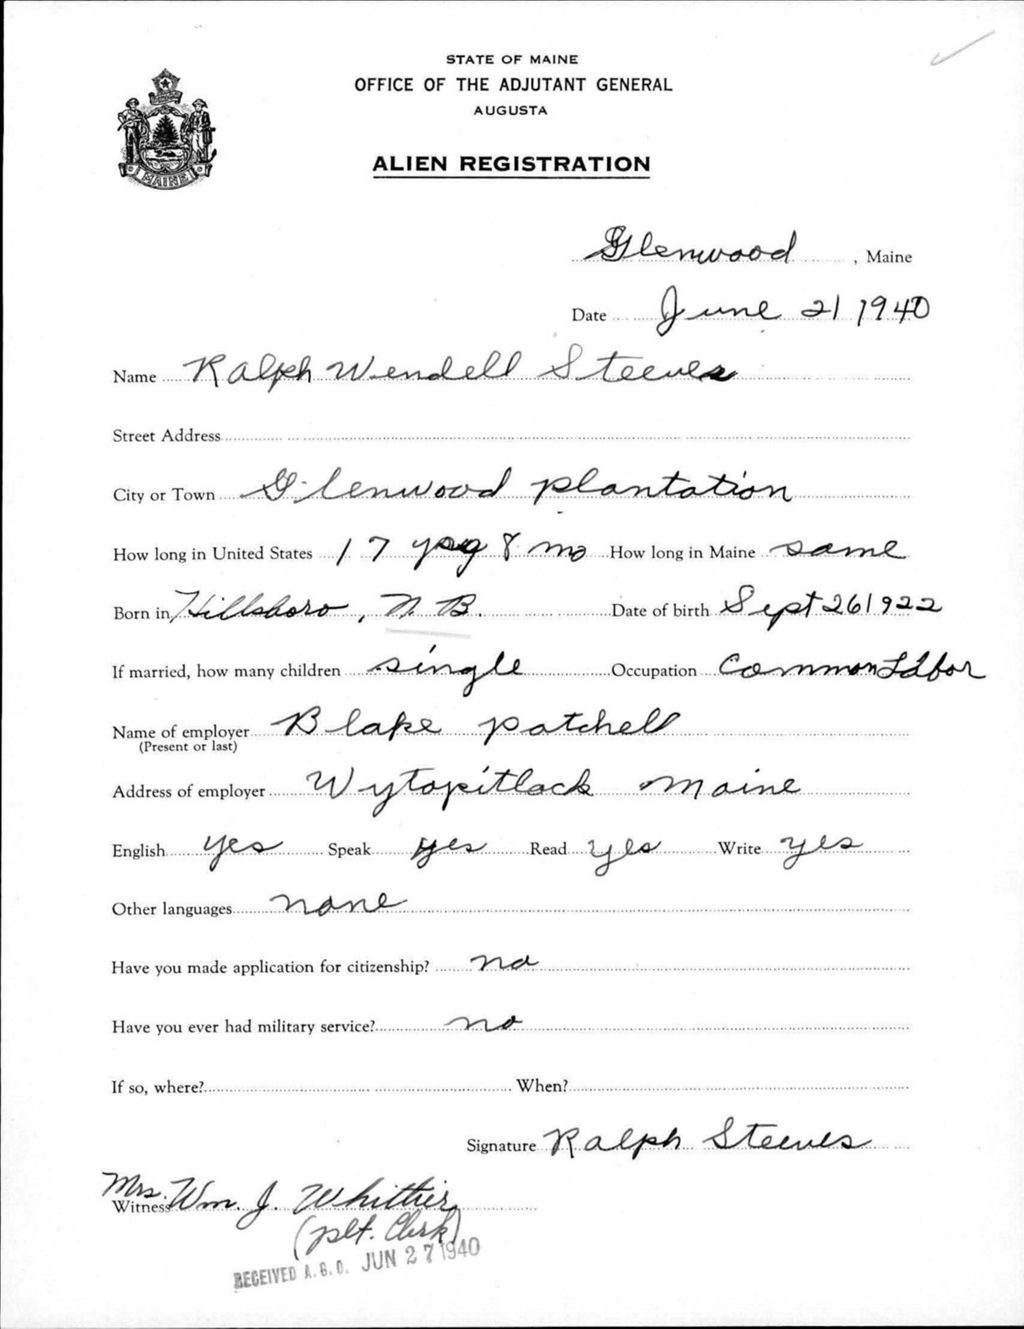 STATE OF MAINE
OFFICE OF THE ADJUTANT GENERAL
AUGUSTA
ALIEN REGISTRATION
MAINE
Glenwood, Maine
Date June 21 1940
Name Ralph Wendell Steeves
Street Address
City or Town Glenwood plantation
How long in United States 17 yrs 8 mo How long in Maine same
Born in Hillsboro, N.B. Date of birth Sept 26 1922
If married, how many children single Occupation Common Labor
Name of employer Blake patchell
(Present or last)
Address of employer Wytopitlock Maine
English yes Speak yes Read yes Write yes
Other languages none
Have you made application for citizenship? no
Have you ever had military service? no
If so, where? When?
Signature Ralph Steeves
Witness Mrs. Wm. J. Whittier
(plt. Clerk)
RECEIVED A.G.O. JUN 27 1940